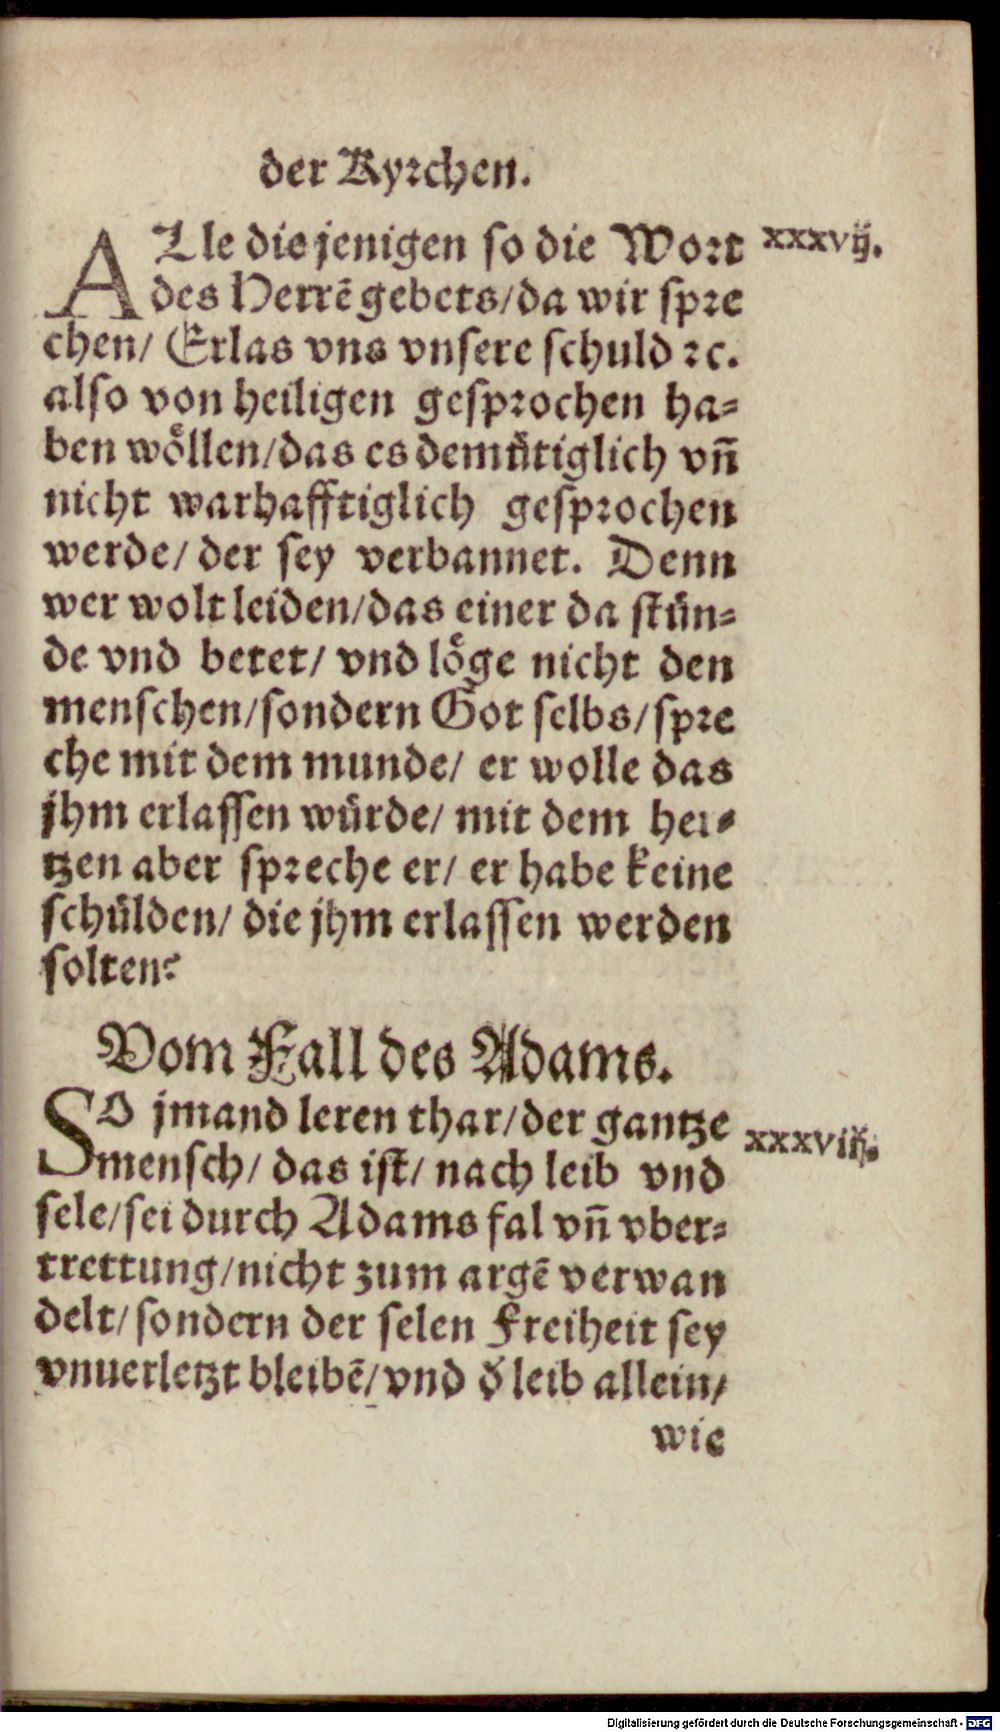 der Kyrchen.
ALle die jenigen so die Wort xxxvij.
des Herrẽ gebets/da wir spre
chen/ Erlas vns vnsere schuld ꝛc.
also von heiligen gesprochen ha⸗
ben woͤllen/das es demuͤtiglich vñ
nicht warhafftiglich gesprochen
werde/ der sey verbannet. Denn
wer wolt leiden/das einer da stuͤn⸗
de vnd betet/ vnd loͤge nicht den
menschen/sondern Got selbs/spre
che mit dem munde/ er wolle das
jhm erlassen wuͤrde/ mit dem her⸗
tzen aber spreche er/ er habe keine
schuͤlden/ die jhm erlassen werden
solten?
Vom Fall des Adams.
SO jmand leren thar/der gantze xxxviij.
mensch/ das ist/ nach leib vnd
sele/sei durch Adams fal vñ vber⸗
trettung/nicht zum argẽ verwan
delt/sondern der selen Freiheit sey
vnuerletzt bleibẽ/vnd d̕ leib allein/
wie
Digitalisierung gefördert durch die Deutsche Forschungsgemeinschaft - DFG